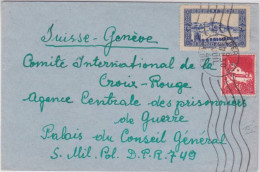 Suisse-Genève
Comité International de la
Croix-Rouge
Agence Centrale des prisonniers
de Guerre
Palais du Conseil Général
S. Mil. Pol. D.P.R. 749